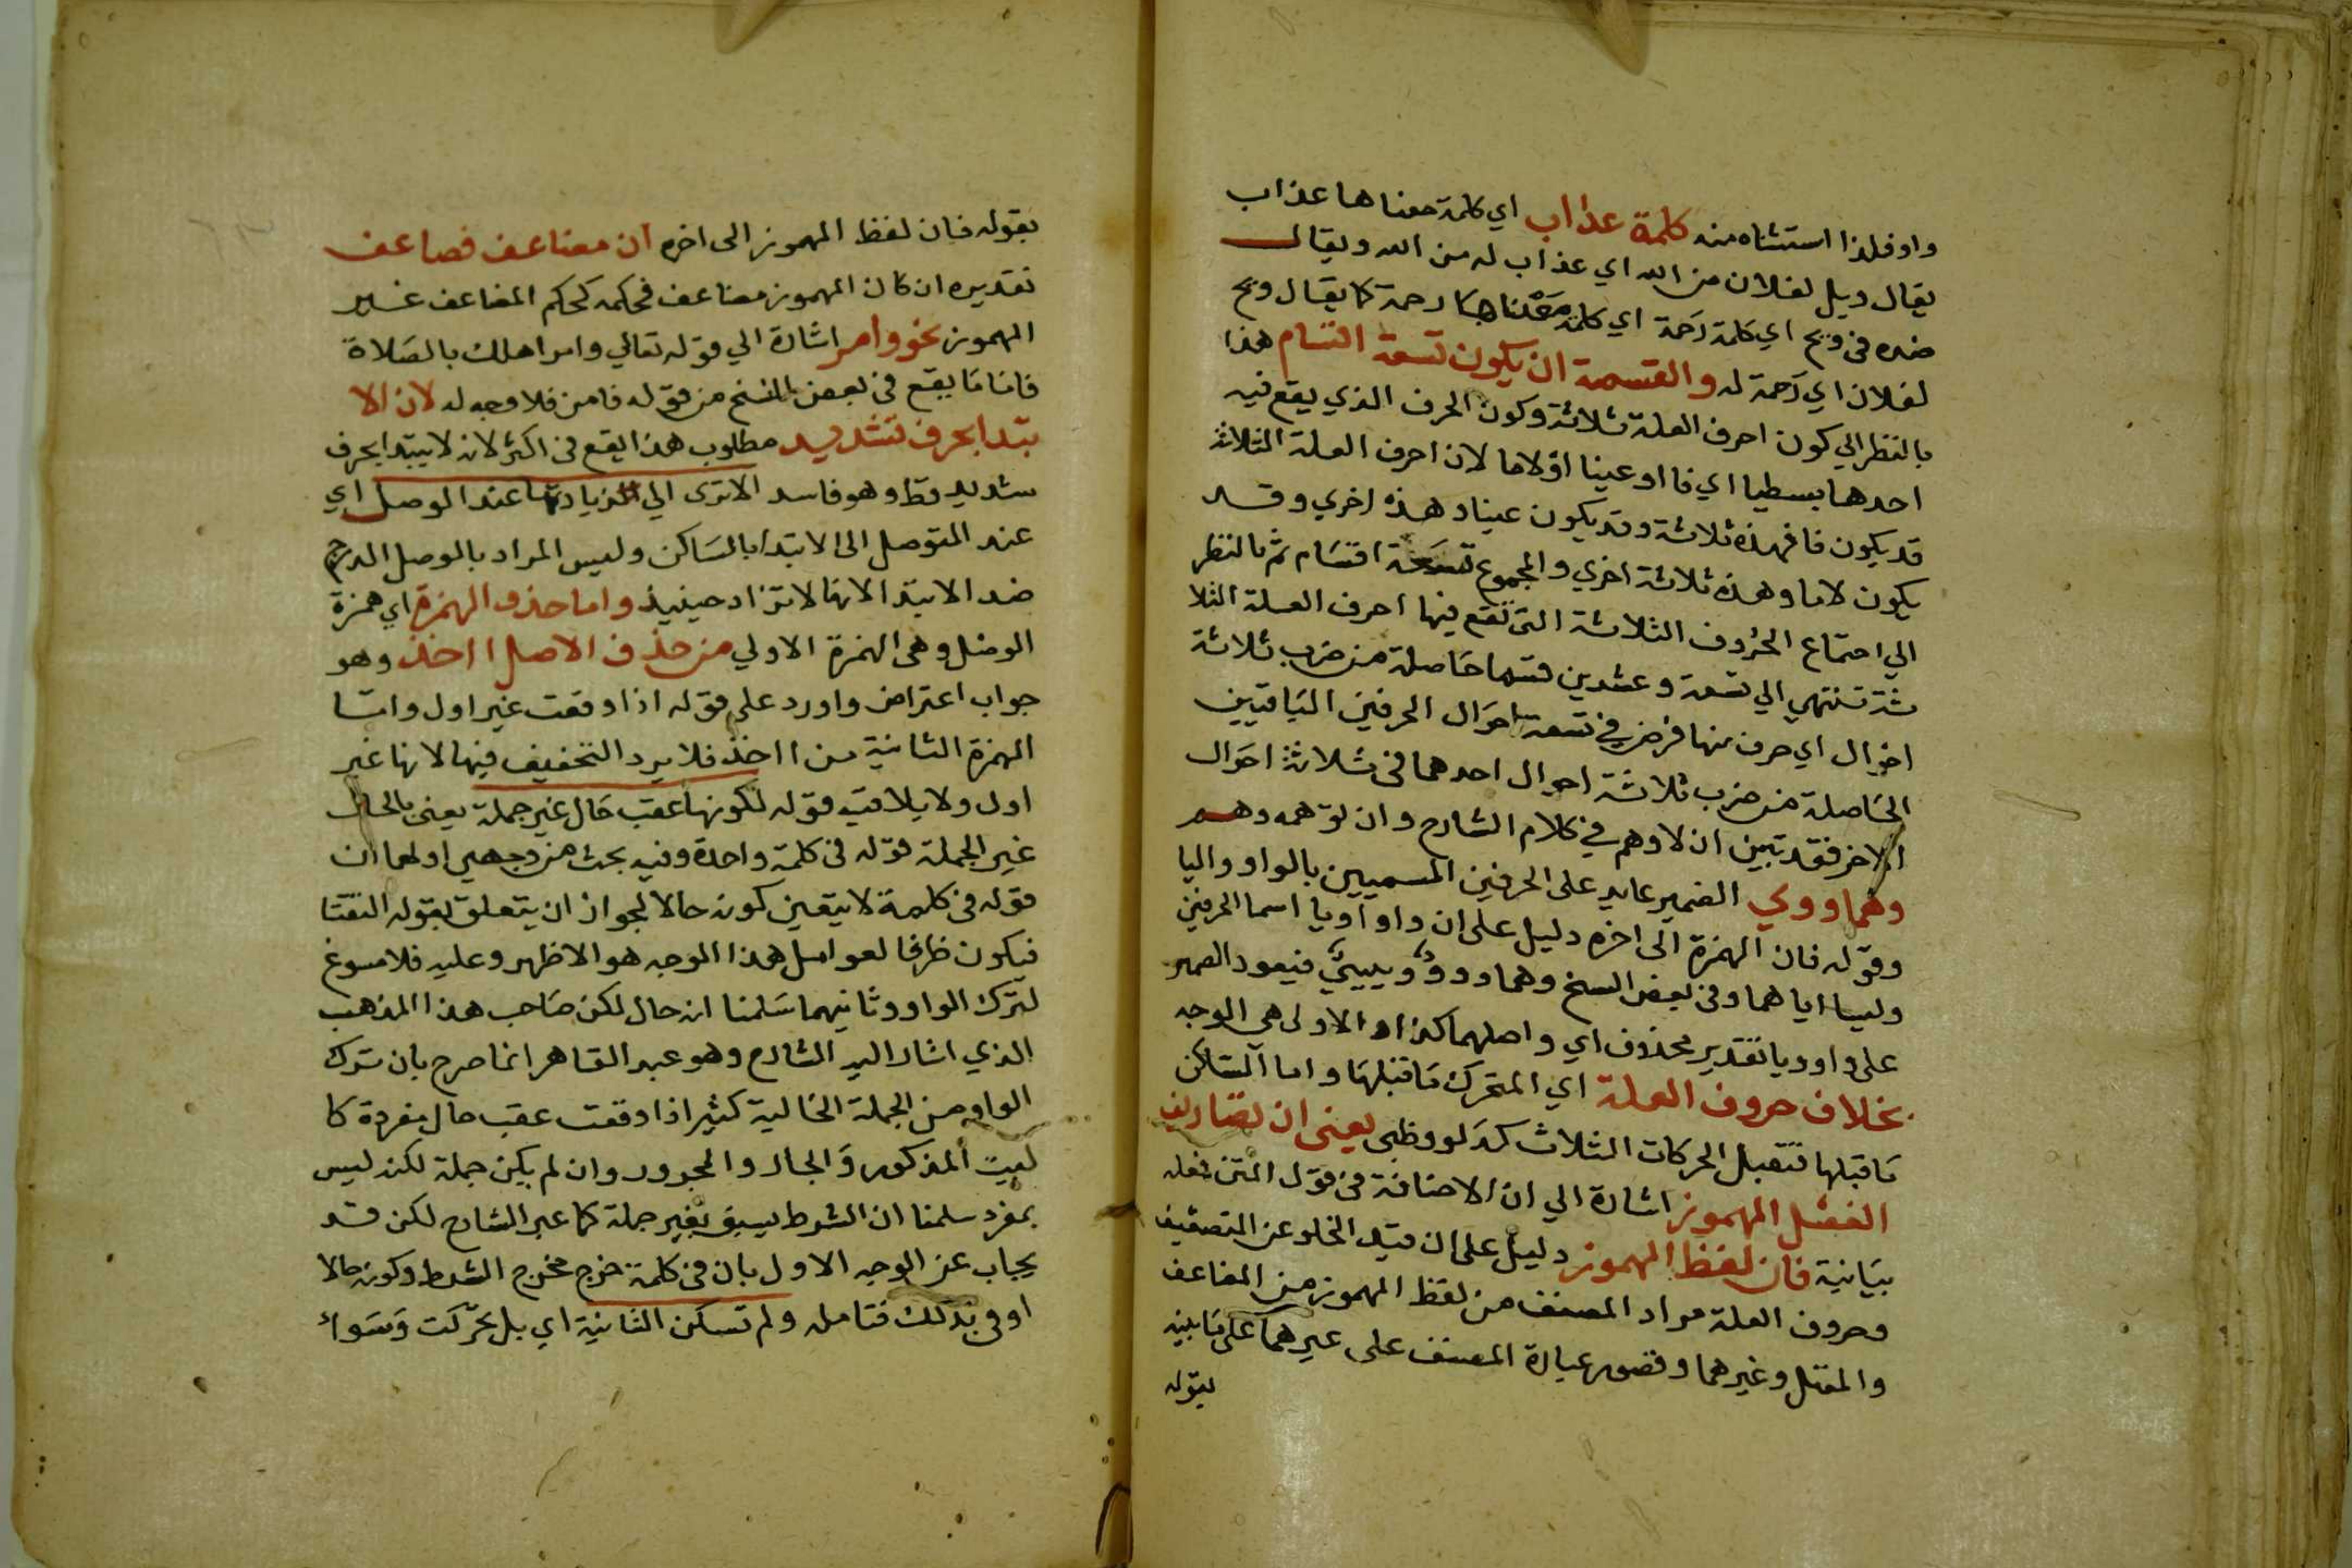 واو فلذا استثناه منه كلمة عذاب اي كلمة معناها عذاب
يقال ويل لفلان من الله اي عذاب له من الله ويقال
ضده في ويح اي كلمة رحمة اي كلمة معناها رحمة كما يقال ويح
لفلان اي رحمة له والقسمة ان يكون تسعة اقسام هذا
بالنظر الي كون احرف العلة ثلاثة وكون الحرف الذي يقع فيه
احدها بسطيا اي فا او عينا او لاما لان احرف العلة الثلاث
قد يكون فا فهذه ثلاثة وقد يكون عينا وهذه اخري وقد
يكون لاما وهذه ثلاثة اخري والمجموع تسعة اقسام ثم بالنظر
الي اجتماع الحروف الثلاثة التي تقع فيها احرف العلة الثلا
ثة تنتهي الي تسعة وعشرين قسما حاصلة من ضرب ثلاثة
احوال اي حرف منها فرض في تسعة احوال الحرفين الباقيين
الحاصلة من ضرب ثلاثة احوال احدهما في ثلاثة احوال
الاخر فقد تبين ان لا وهم في كلام الشارح وان توهمه وهم
وهما ووي الضمير عايد على الحرفين المسميين بالواو واليا
وقوله فان الهمزة الى اخره دليل على ان واو او يا اسما الحرفين
وليسا اياهما وفي بعض النسخ وهما ووو وييي فيعود الضمير
على واو ويا بتقدير محذوف اي واصلهما كذا والاولى هي الوجه
بخلاف حروف العلة اي المتحرك ما قبلها واما الساكن
ما قبلها فتقبل الحركات الثلاث كدلو وظبي يعني ان تصاريف
الفعل المهموز اشارة الي ان الاضافة في قول المتن فعله
بيانية فان لفظ المهموز دليل على ان قيد الخلو عن التضعيف
وحروف العلة مراد المصنف من لفظ المهموز من المضاعف
والمعتل وغيرهما وقصور عبارة المصنف على غيرهما على ما بينه
بقوله
بقوله فان لفظ المهموز الى اخره ان مضاعف فصاعف
تقديره ان كان المهموز مضاعف فحكمه كحكم المضاعف غير
المهموز نحو وامر اشارة الي قوله تعالي وامر اهلك بالصلاة
فاما ما يقع في بعض النسخ من قوله فامن فلا وجه له لان الا
بتدا بحرف تشديد مطلوب هذا يقع في اكثر لانه لا يبتدا بحرف
شديد قط وهو فاسد الاترى الي زيادتها عند الوصل اي
عند التوصل الى الابتدا بالساكن وليس المراد بالوصل الدرج
ضد الابتدا لانها لا تزاد حينيذ واما حذف الهمزة اي همزة
الوصل وهي الهمزة الاولي من حذف الاصل ااخذ وهو
جواب اعتراض واورد على قوله اذا وقعت غير اول واما
الهمزة الثانية من ااخذ فلا يرد التخفيف فيها لانها غير
اول ولا يلاقيه قوله لكونها عقب حال غير جملة يعني بالحال
غير الجملة قوله في كلمة واحدة وفيه بحث من وجهين اولهما ان
قوله في كلمة لا يتعين كونه حالا لجواز ان يتعلق بقوله التقتا
فيكون ظرفا لغوا بل هذا الوجه هو الاظهر وعليه فلا مسوغ
لترك الواو وثانيهما سلمنا انه حال لكن صاحب هذا المذهب
الذي اشار اليه الشارح وهو عبد القاهر انما صرح بان ترك
الواو من الجملة الحالية كثير اذا وقعت عقب حال مفردة كا
لبيت المذكور والجار والمجرور وان لم يكن جملة لكنه ليس
بمفرد سلمنا ان الشرط يسبق بغير جملة كما عبر الشارح لكن قد
يجاب عن الوجه الاول بان في كلمة خرج مخرج الشرط وكونه حالا
اوفى بذلك فتامله ولم تسكن الثانية اي بل تحركت وسواء